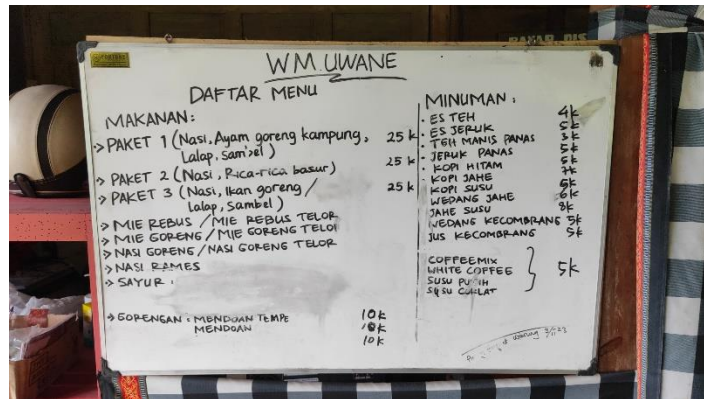 W.M. UWANE
DAFTAR MENU
MAKANAN:
> PAKET 1 (Nasi, Ayam goreng kampung, 25k
Lalap, Sambel)
> PAKET 2 (Nasi, Rica-rica basur) 25k
> PAKET 3 (Nasi, Ikan goreng / 25k
Lalap, Sambel)
> MIE REBUS / MIE REBUS TELOR
> MIE GORENG / MIE GORENG TELOR
> NASI GORENG / NASI GORENG TELOR
> NASI RAMES
> SAYUR :
> GORENGAN : MENDOAN TEMPE 10k
MENDOAN 10k
10k
MINUMAN :
· ES TEH 4k
· ES JERUK 5k
· TEH MANIS PANAS 3k
· JERUK PANAS 5k
· KOPI HITAM 5k
· KOPI JAHE 7k
KOPI SUSU 5k
WEDANG JAHE 6k
JAHE SUSU 8k
WEDANG KECOMBRANG 5k
JUS KECOMBRANG 5k
COFFEEMIX
WHITE COFFEE 5k
SUSU PUTIH
SUSU COKLAT